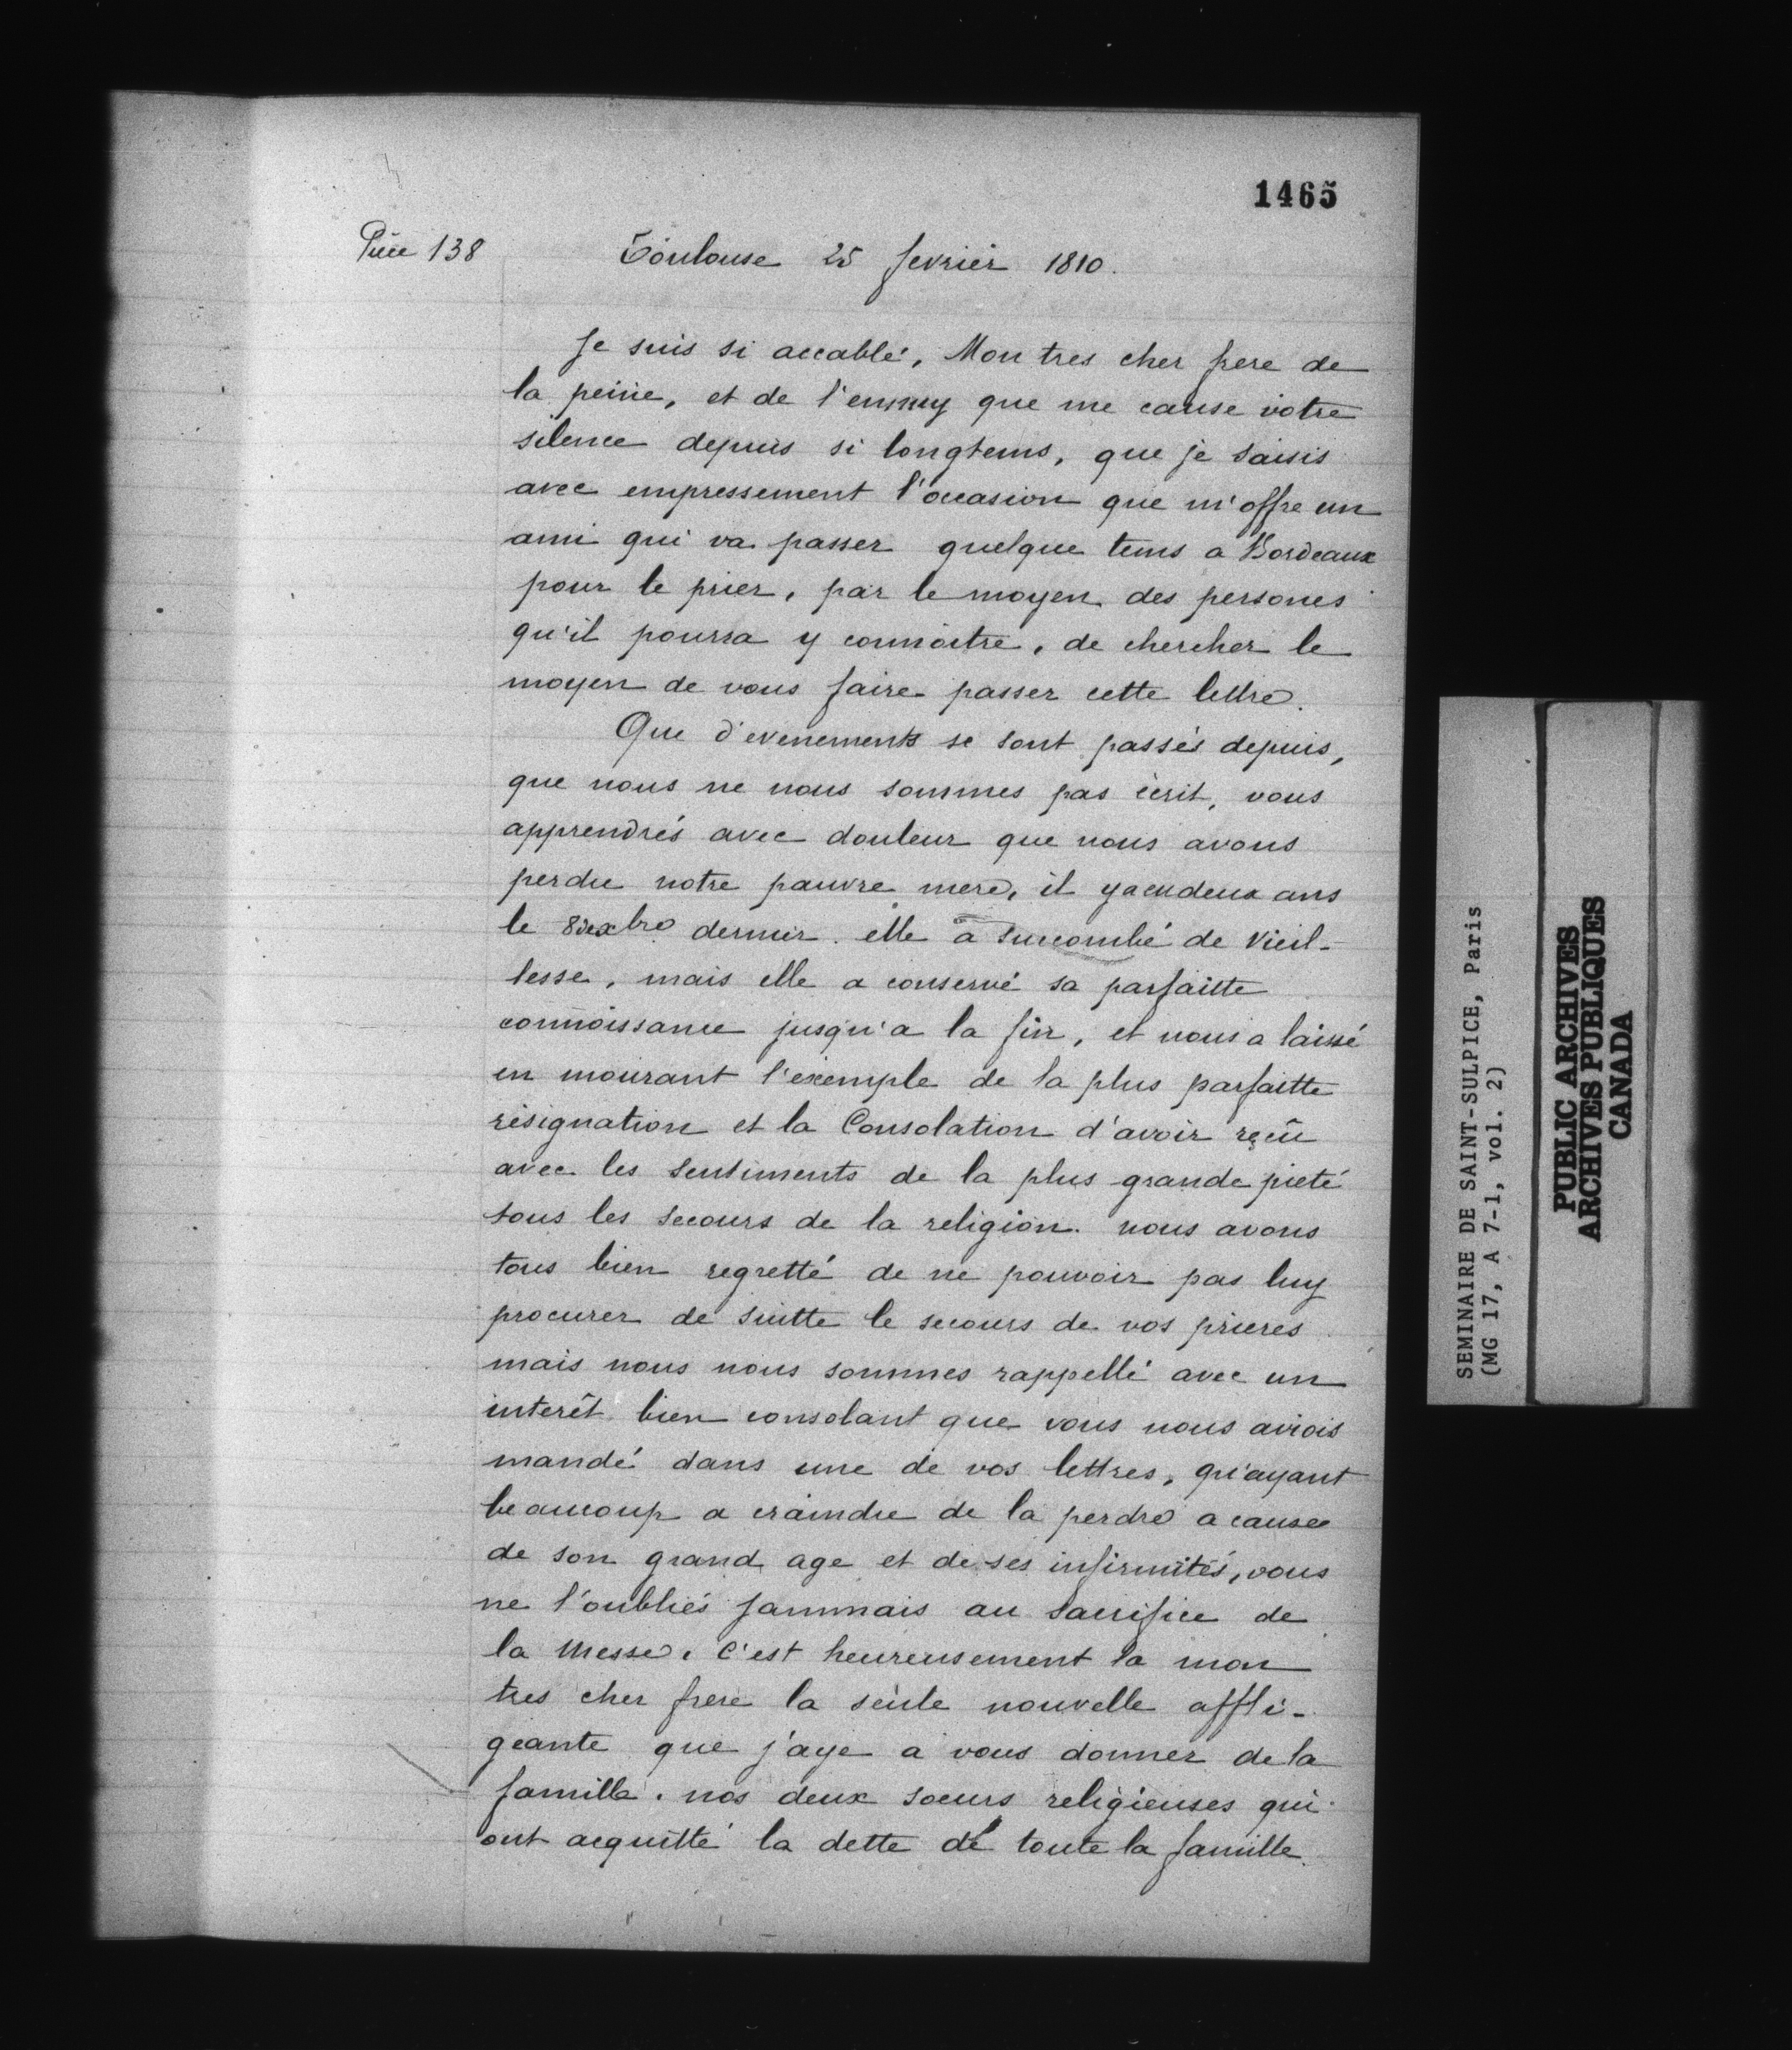 1465
Pièce 138
Toulouse 25 fevrier 1810.
Je suis si accablé, Mon tres cher frere de
la peine, et de l'ennuy que me cause votre
silence depuis si longtems, que je saisis
avec empressement l'occasion que m'offre un
ami qui va passer quelque tems a Bordeaux
pour le prier, par le moyen des persones
qu'il pourra y connoitre, de chercher le
moyen de vous faire passer cette lettre.
Que d'evenements se sont passés depuis,
que nous ne nous sommes pas écrit, vous
apprendrés avec douleur que nous avons
perdu notre pauvre mere, il y a eu deux ans
le 8 dernier. elle a succombé de vieil-
lesse, mais elle a conservé sa parfaitte
connoissance jusqu'a la fin, et nous a laissé
en mourant l'exemple de la plus parfaitte
résignation et la Consolation d'avoir reçû
avec les sentiments de la plus grande pieté
tous les secours de la religion. nous avons
tous bien regretté de ne pouvoir pas luy
procurer de suitte le secours de vos prieres
mais nous nous sommes rappellé avec un
interêt bien consolant que vous nous aviois
mandé dans une de vos lettres, qu'ayant
beaucoup a craindre de la perdre a cause
de son grand age et de ses infirmités, vous
ne l'oubliés jammais au sacrifice de
la Messe. C'est heureusement la mon
tres cher frere la seule nouvelle affli-
geante que j'aye a vous donner de la
famille. nos deux soeurs religieuses qui
ont acquitté la dette de toute la famille.
SEMINAIRE DE SAINT-SULPICE, Paris
(MG 17, A 7-1, vol. 2)
PUBLIC ARCHIVES
ARCHIVES PUBLIQUES
CANADA